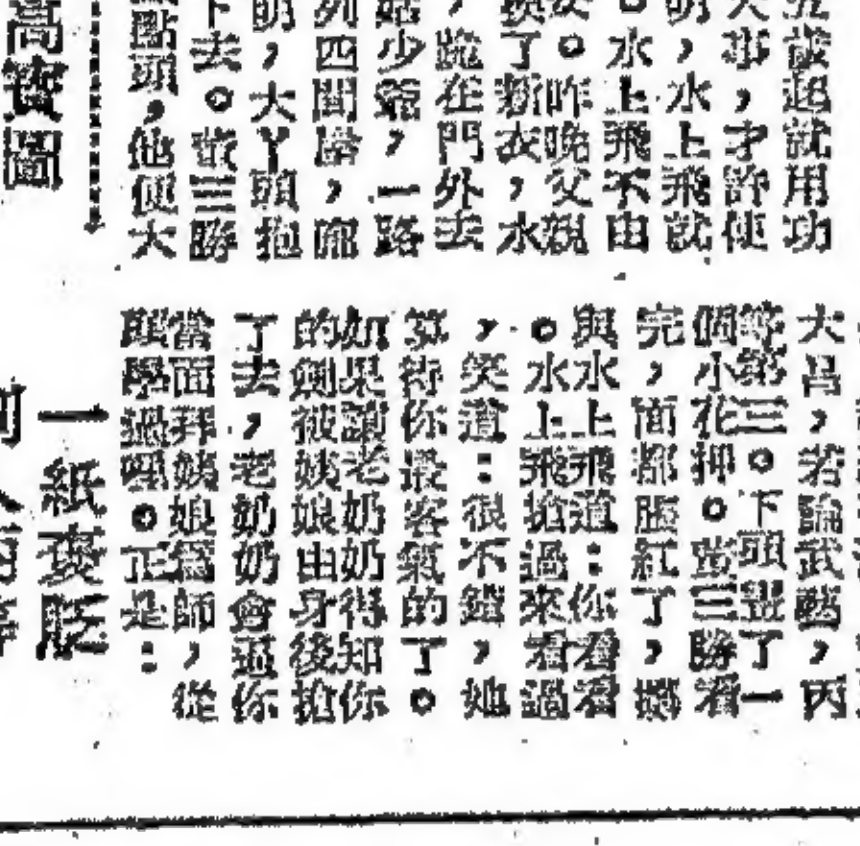 起就用功
大事，才許使
明，水上飛就
。水上飛不由
。昨晚父親
換了新衣，水
，跪在門外去
姑少爺，一路
列四間房，廊
明，大丫頭抱
下去。董三勝
點頭，他便大
高寶圖
大昌，若論武藝，丙
等第三。下頭畫了一
個小花押。董三勝看
完，面都脹紅了，擲
與水上飛道：你看看
。水上飛搶過來看過
，笑道：很不錯，她
算待你最客氣的了。
如果讓老奶奶得知你
的劍被姨娘由身後搶
了去，老奶奶會逼你
當面拜姨娘為師，從
頭學過哩。正是：
一紙褒貶